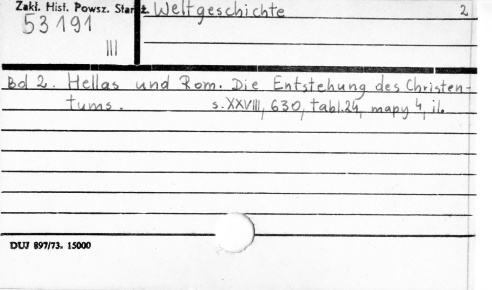 Zakł. Hist. Powsz. Staroż. Weltgeschichte 2
53191
III
Bd 2. Hellas und Rom. Die Entstehung des Christen-
tums. s. XXVIII, 630, tabl. 24, mapy 4, il.
DUJ 897/73. 15000